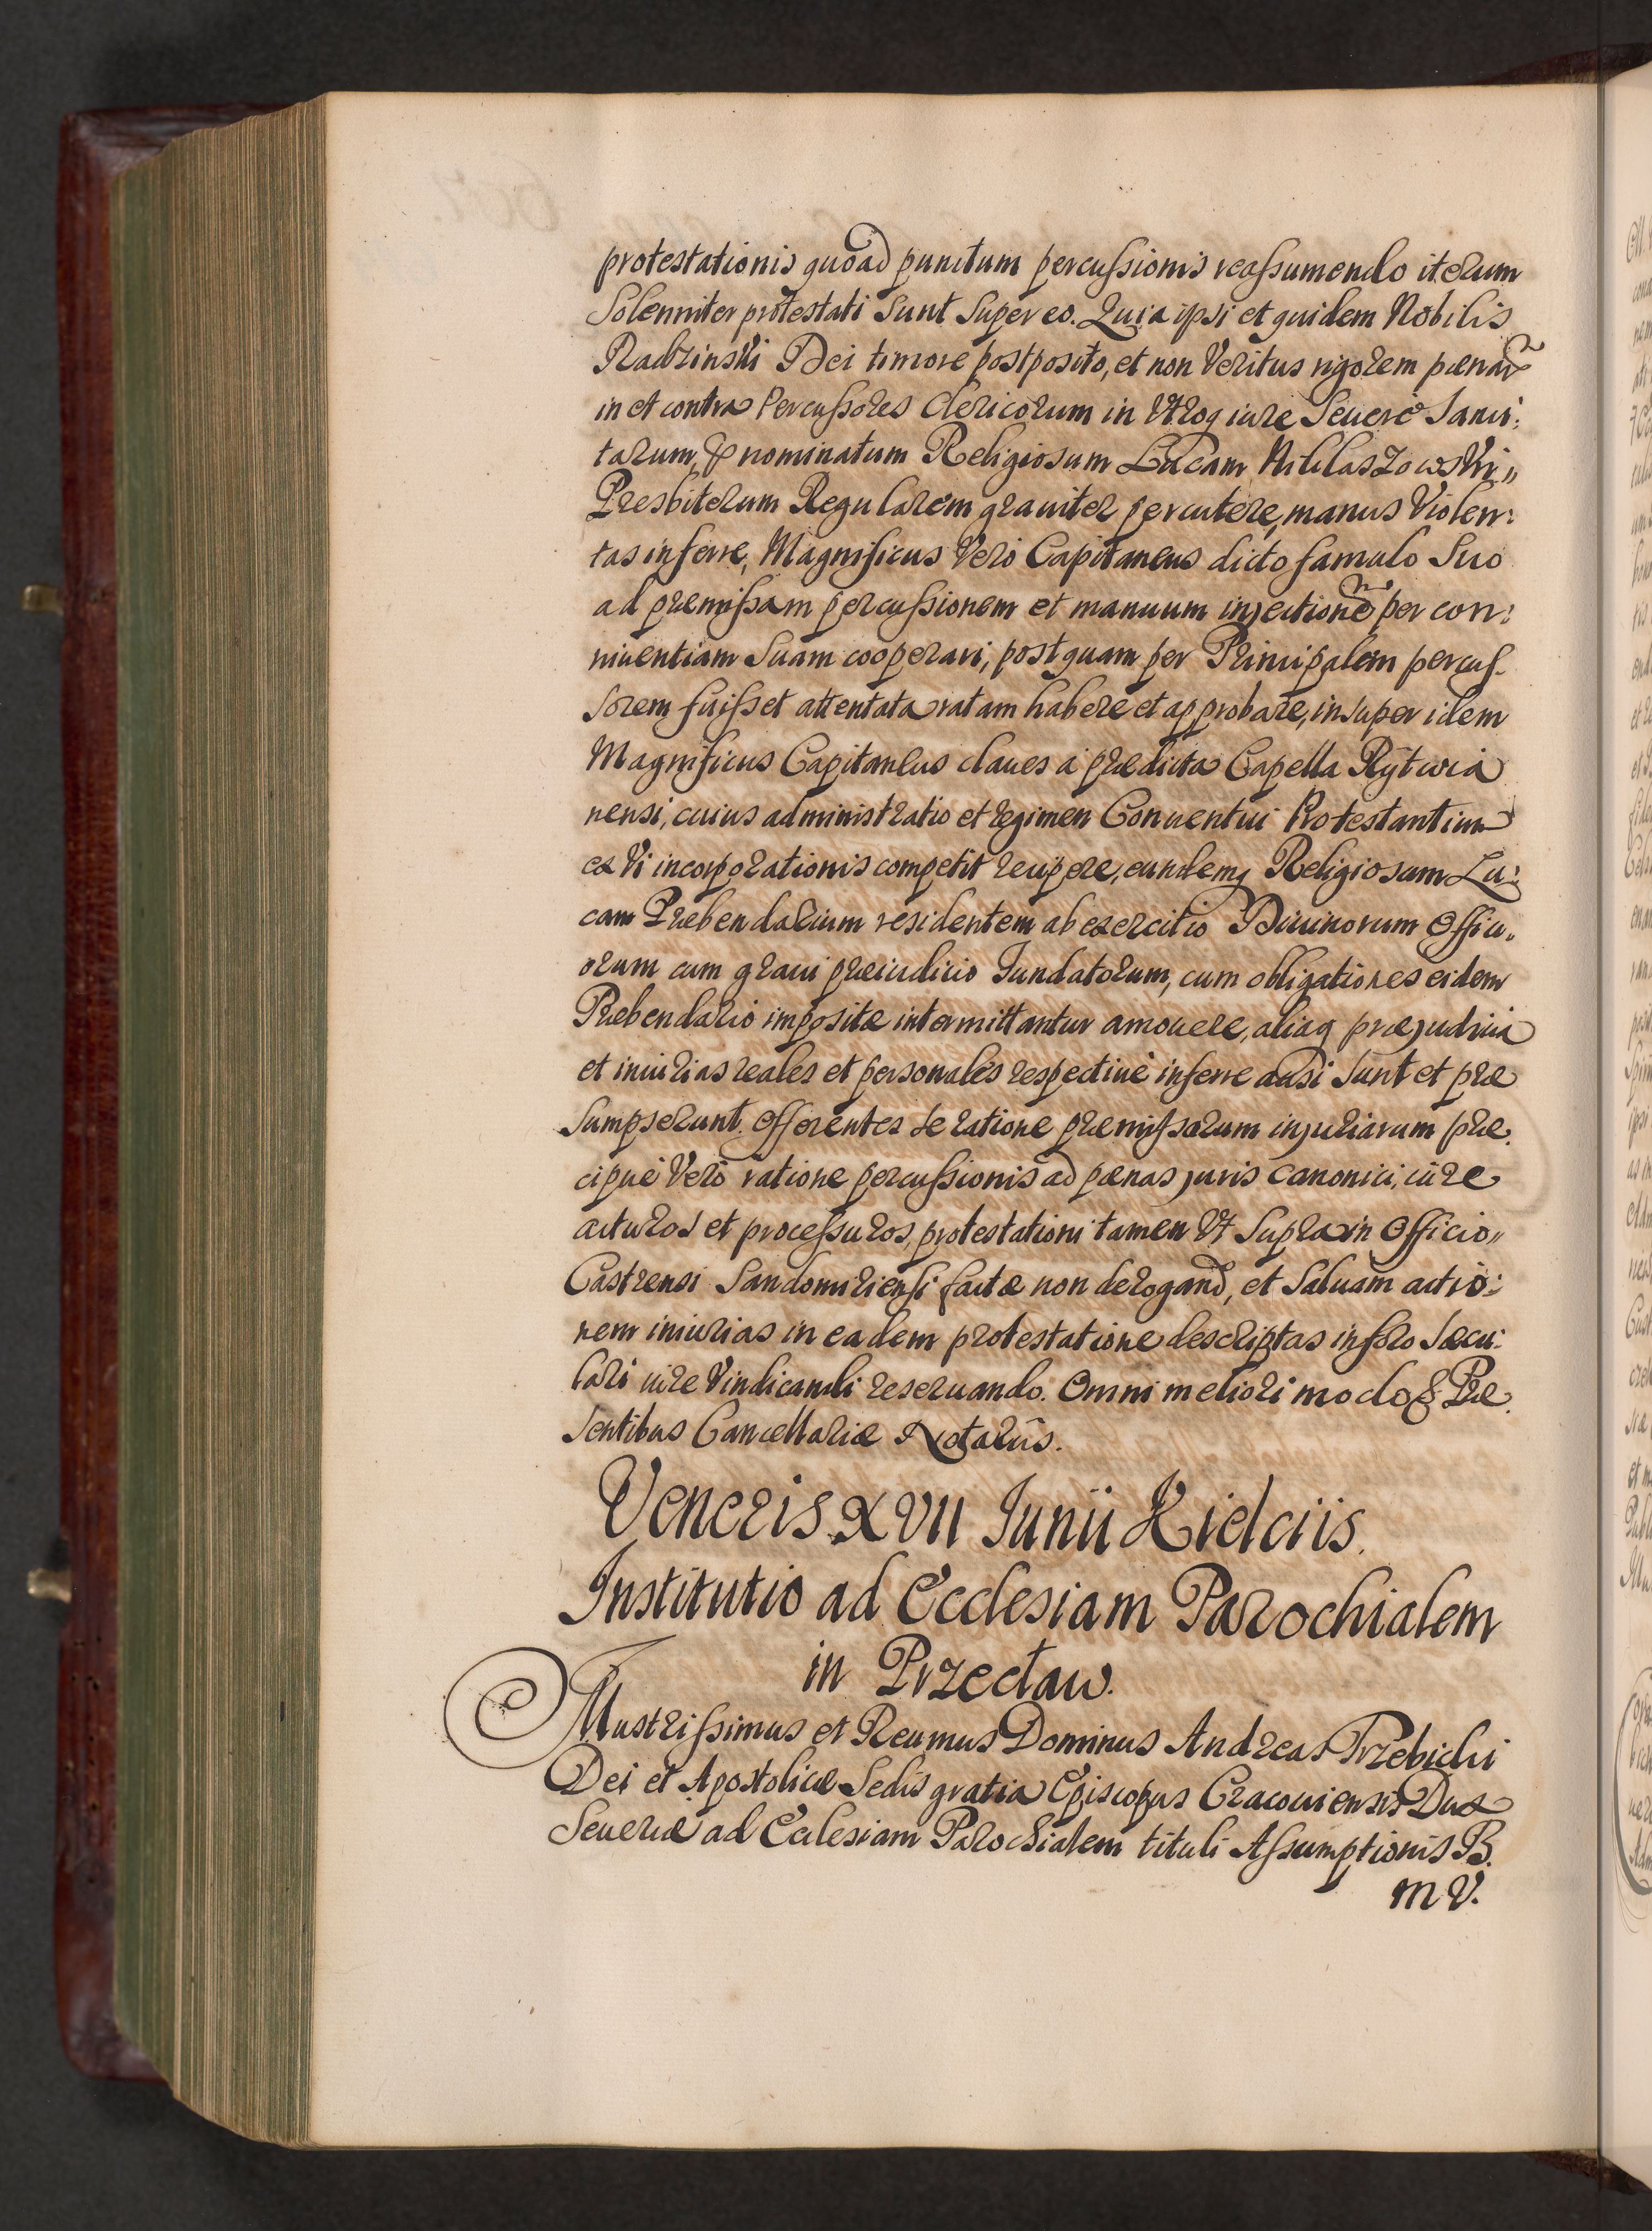 protestationis quoad punctum percussionis reassumendo iterum
Solenniter protestati Sunt Super eo. Quia ipsi et quidem Nobilis
Radzinski Dei timore postposito, et non Veritus rigorem pænar
in et contra Percussores Clericorum in Utroq iure Seuerè Sanci:
tarum, nominatum Religiosum Lucam Mikłaszowski„
Presbiterum Regularem grauiter percutere, manus Violen:
tas inferre, Magnificus Verò Capitaneus dicto famulo Suo
ad præmissam percussionem et manuum injectionē per con:
niuentiam Suam cooperari, postquam per Principalem percus-
sorem fuisset attentata ratam habere et approbare, insuper idem
Magnificus Capitaneus claues à prædicta Capella Rytwia
nensi, cuius administratio et regimen Conuentui Protestantium
ex Vi incorporationis competit recipere, eundemq Religiosum Lu:
cam Præbendarium residentem ab exercitio Diuinorum Offici„
orum cum graui præiudicio Fundatorum, cum obligationes eidem
Præbendario impositæ intermittantur amouere, aliaq præjudicia
et iniurias reales et personales respectiuè inferre ausi Sunt et præ
Sumpserunt. Offerentes se ratione præmissarum injuriarum præ.
cipuè Verò ratione percussionis ad pænas juris Canonici, iure
acturos et processuros, protestationi tamen Ut Supra in Officio„
Castrensi Sandomiriensi factæ non derogand, et Saluam actio:
nem iniurias in eadem protestatione descriptas in foro Sæcu:
lari iure Vindicandi reseruando. Omni meliori modo & Præ.
sentibus Cancellariæ Notariis.
Veneris XVII Junii Kielciis.
Institutio ad Ecclesiam Parochialem
in Przecław.
Illustrissimus et Reumus Dominus Andreas Trzebicki
Dei et Apostolicæ Sedis gratia Episcopus Cracouiensis Dux
Seueriæ ad Ecclesiam Parochialem tituli Assumptionis B.
M V.